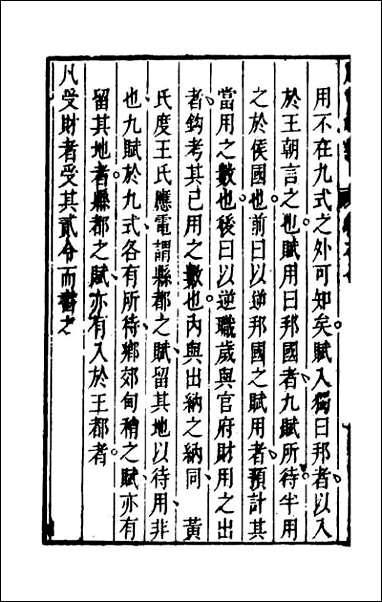 用不在九式之外可知矣賦入獨曰邦者以入
於王朝言之也賦用曰邦國者九賦所待半用
之於侯國也前曰以逆邦國之賦用者預計其
當用之數也後曰以逆職歲與官府財用之出
者鈎考其已用之數也內與出納之納同 黃
氏度王氏應電謂縣都之賦留其地以待用非
也九賦於九式各有所待鄉郊甸稍之賦亦有
留其地者縣都之賦亦有入於王都者
凡受財者受其貳令而書之